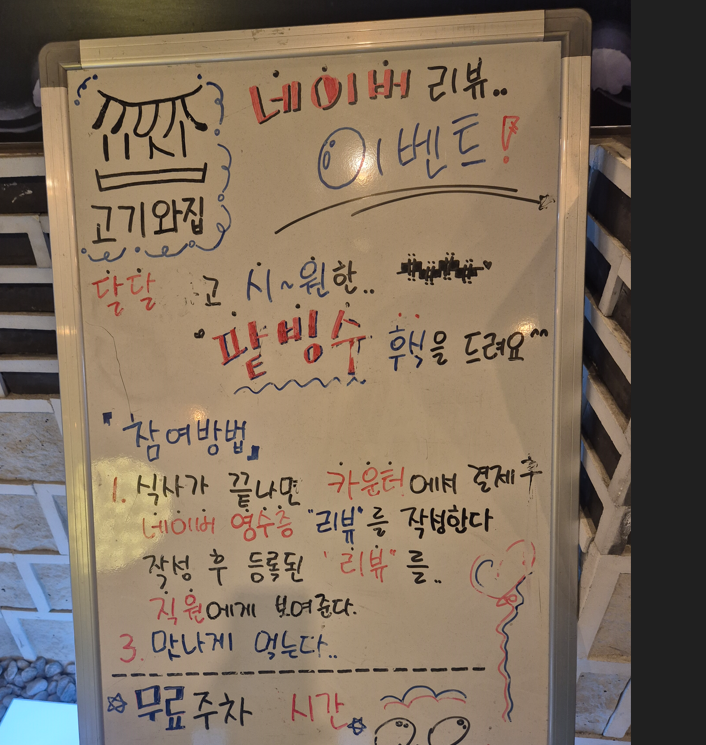 네이버 리뷰..
이벤트!
고기와집
달달 고 시~원한..
팥빙수 후식을 드려요^^
「참여방법」
1. 식사가 끝나면 카운터에서 결제 후
네이버 영수증 "리뷰"를 작성한다
작성 후 등록된 '리뷰"를..
직원에게 보여준다.
3. 맛나게 먹는다..
무료주차 시간